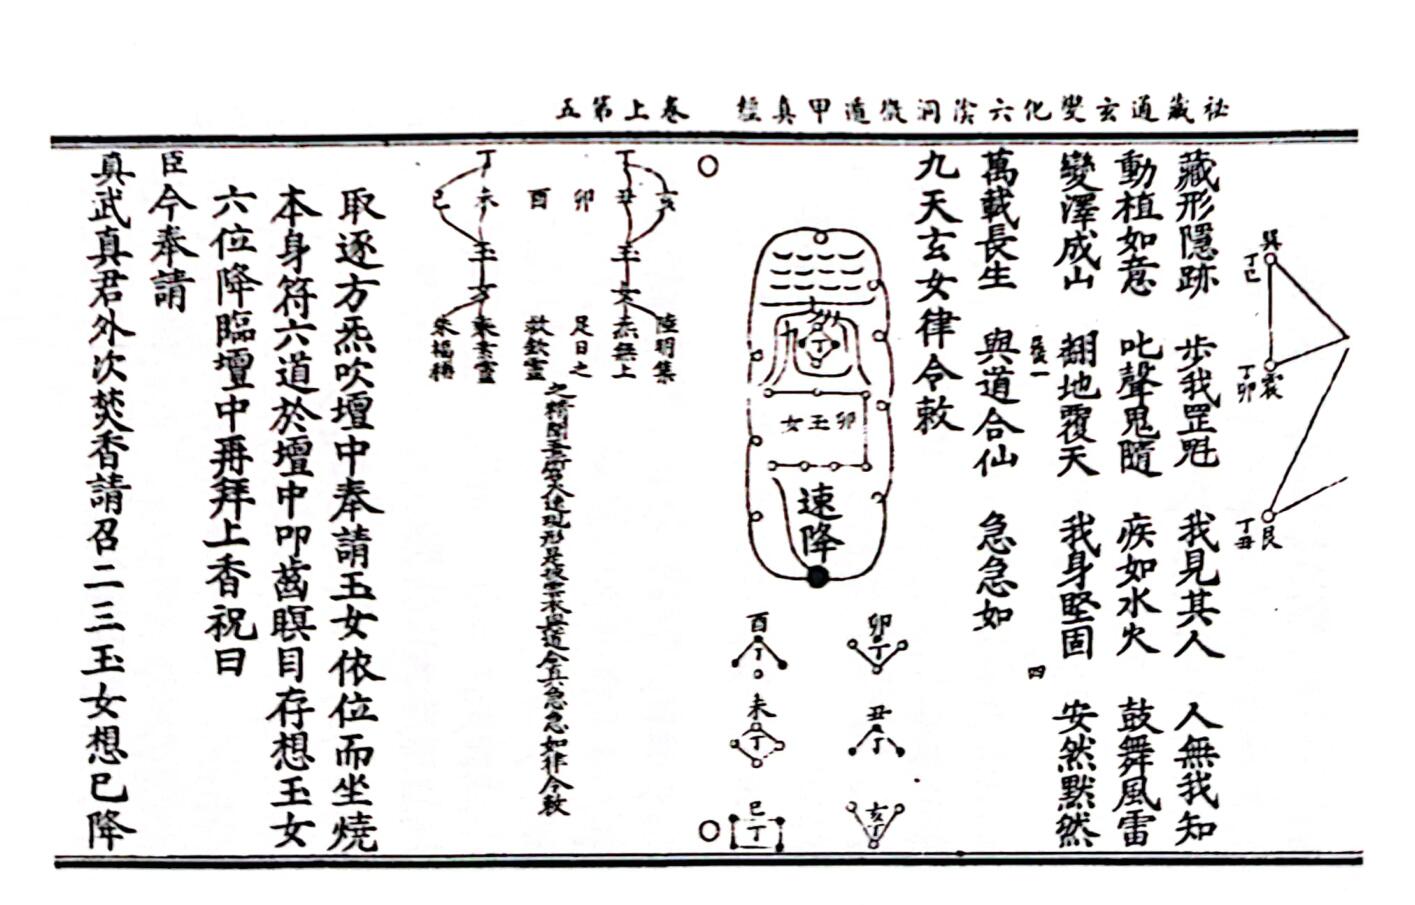 祕藏通玄變化六陰洞微遁甲真經　卷上第五
巽
丁巳
震
丁卯
艮
丁丑
藏形隱跡　步我罡魁　我見其人　人無我知
動植如意　叱聲鬼隨　疾如水火　鼓舞風雷
變澤成山　翻地覆天　我身堅固　安然默然
四
萬載長生　與道合仙　急急如
九天玄女律令敕
九
丁
卯玉女
速降
卯丁
丑丁
亥丁
酉丁
未丁
巳丁
亥
丁丑玉女
卯
酉
丁未玉女
巳
陸明集
炁無上
足日之
敕欽靈
乘素靈
火速現形是
與道合真急急如律令敕
取逐方炁吹壇中奉請玉女依位而坐燒
本身符六道於壇中叩齒瞑目存想玉女
六位降臨壇中再拜上香祝曰
臣今奉請
真武真君外次焚香請召二三玉女想巳降